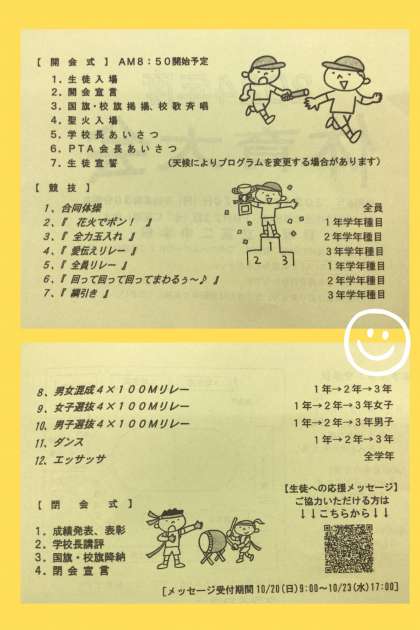 【 開 会 式 】 AM8:50開始予定
1．生徒入場
2．開会宣言
3．国旗・校旗掲揚、校歌斉唱
4．聖火入場
5．学校長あいさつ
6．PTA会長あいさつ
7．生徒宣誓 (天候によりプログラムを変更する場合があります)
【 競 技 】
1、合同体操 全員
2、『 花火でポン！ 』 1年学年種目
3、『 全力玉入れ 』 2年学年種目
4、『 愛伝えリレー 』 3年学年種目
5、『 全員リレー 』 1年学年種目
6、『 回って回って回ってまわるぅ～♪ 』 2年学年種目
7、『 綱引き 』 3年学年種目
1
2
3
8、男女混成4×100Mリレー 1年→2年→3年
9、女子選抜4×100Mリレー 1年→2年→3年女子
10、男子選抜4×100Mリレー 1年→2年→3年男子
11、ダンス 1年→2年→3年
12、エッサッサ 全学年
【生徒への応援メッセージ】
ご協力いただける方は
↓↓こちらから↓↓
【 閉 会 式 】
1．成績発表、表彰
2．学校長講評
3．国旗・校旗降納
4．閉会宣言
[メッセージ受付期間 10/20(日)9:00～10/23(水)17:00]